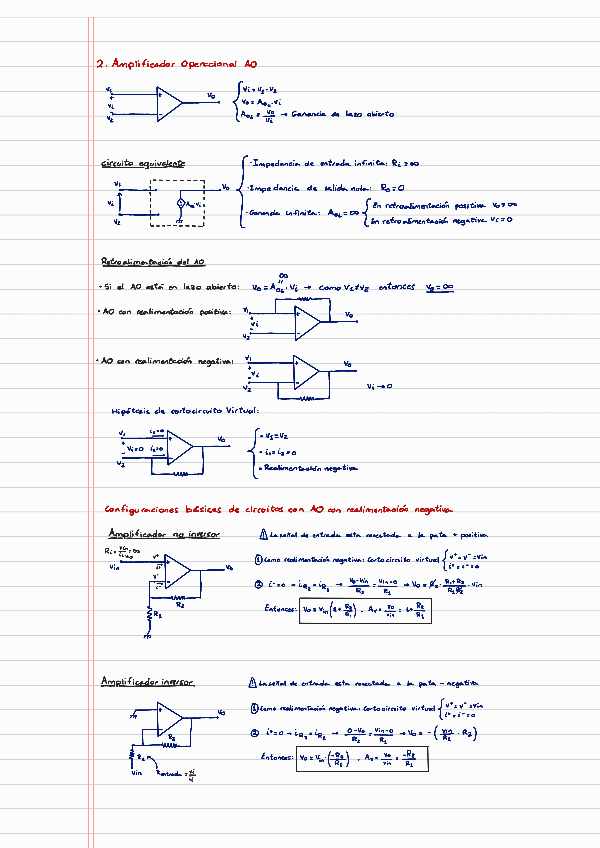 2. Amplificador Operacional AO
V₁
Vi
V₂
V₀
Vi = V₁ - V₂
V₀ = A₀L · Vi
A₀L = V₀/Vi → Ganancia de lazo abierto
Circuito equivalente
V₁
Vi
V₂
V₀
· Impedancia de entrada infinita: Ri = ∞
· Impedancia de salida nula: R₀ = 0
· Ganancia infinita: A₀L = ∞
En retroalimentación positiva V₀ = ∞
En retroalimentación negativa Vi = 0
Retroalimentación del AO
· Si el AO está en lazo abierto: V₀ = A₀L · Vi → como V₁ ≠ V₂ entonces V₀ = ∞
∞
· AO con realimentación positiva:
V₁
Vi
V₂
V₀
· AO con realimentación negativa:
V₁
Vi
V₂
V₀
Vi → 0
Hipótesis de cortocircuito Virtual:
V₁
i₁=0
Vi=0
i₂=0
V₂
V₀
· V₁ = V₂
· i₁ = i₂ = 0
· Realimentación negativa
Configuraciones básicas de circuitos con AO con realimentación negativa
Amplificador no inversor
⚠ La señal de entrada esta conectada a la pata + positiva
Vin
V⁺
V⁻
V₀
R₂
R₁
① Como realimentación negativa: Cortocircuito virtual { V⁺ = V⁻ = Vin
i⁺ = i⁻ = 0
② i⁻ = 0 → iR₂ = iR₁ → (V₀-Vin)/R₂ = (Vin-0)/R₁
Entonces: V₀ = Vin (1 + R₂/R₁) , Av = V₀/Vin = 1 + R₂/R₁
Amplificador inversor
⚠ La señal de entrada esta conectada a la pata - negativa
V₀
R₂
R₁
Vin
Rentrada = Vi/
① Como realimentación negativa: Cortocircuito virtual { V⁺ = V⁻ = Vin
i⁺ = i⁻ = 0
② i⁺ = 0 → iR₁ = iR₂ → (0-V₀)/R₂ = (Vin-0)/R₁ → V₀ = -(Vin/R₁ · R₂)
Entonces: V₀ = Vin · (-R₂/R₁) , Av = V₀/Vin = -R₂/R₁